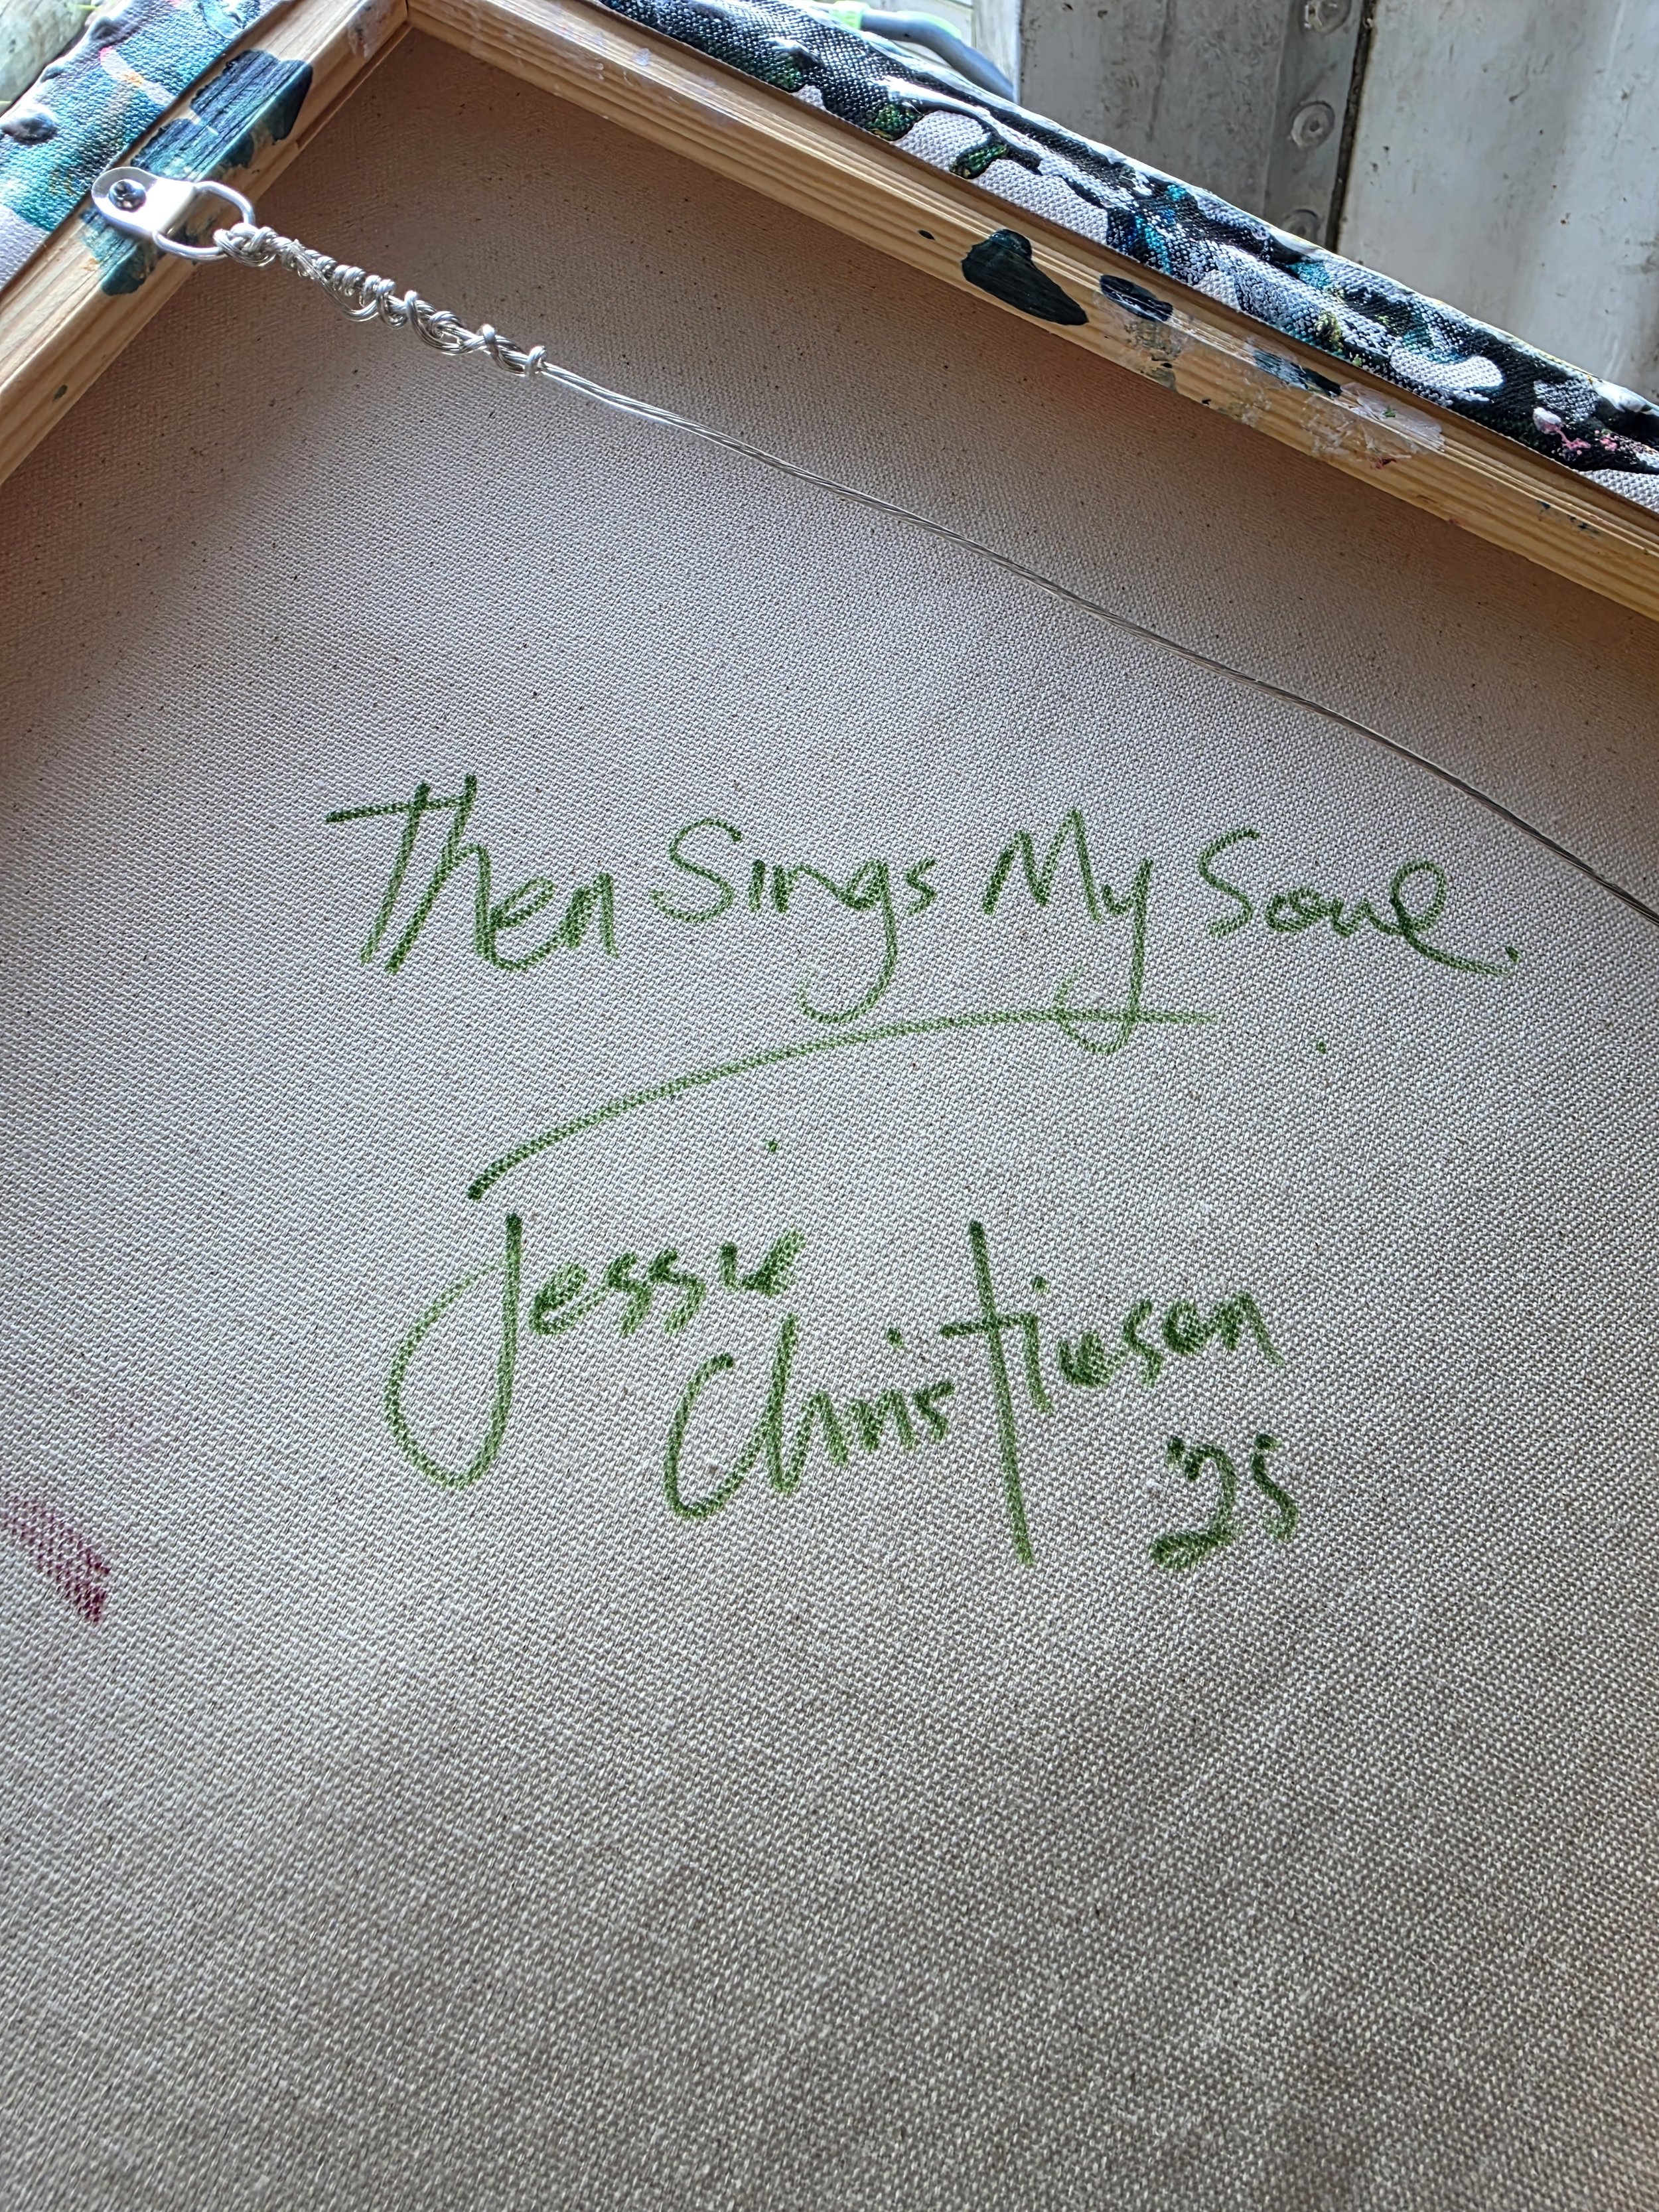 Then Sings My Soul.
Jessie
Christiansen
'25